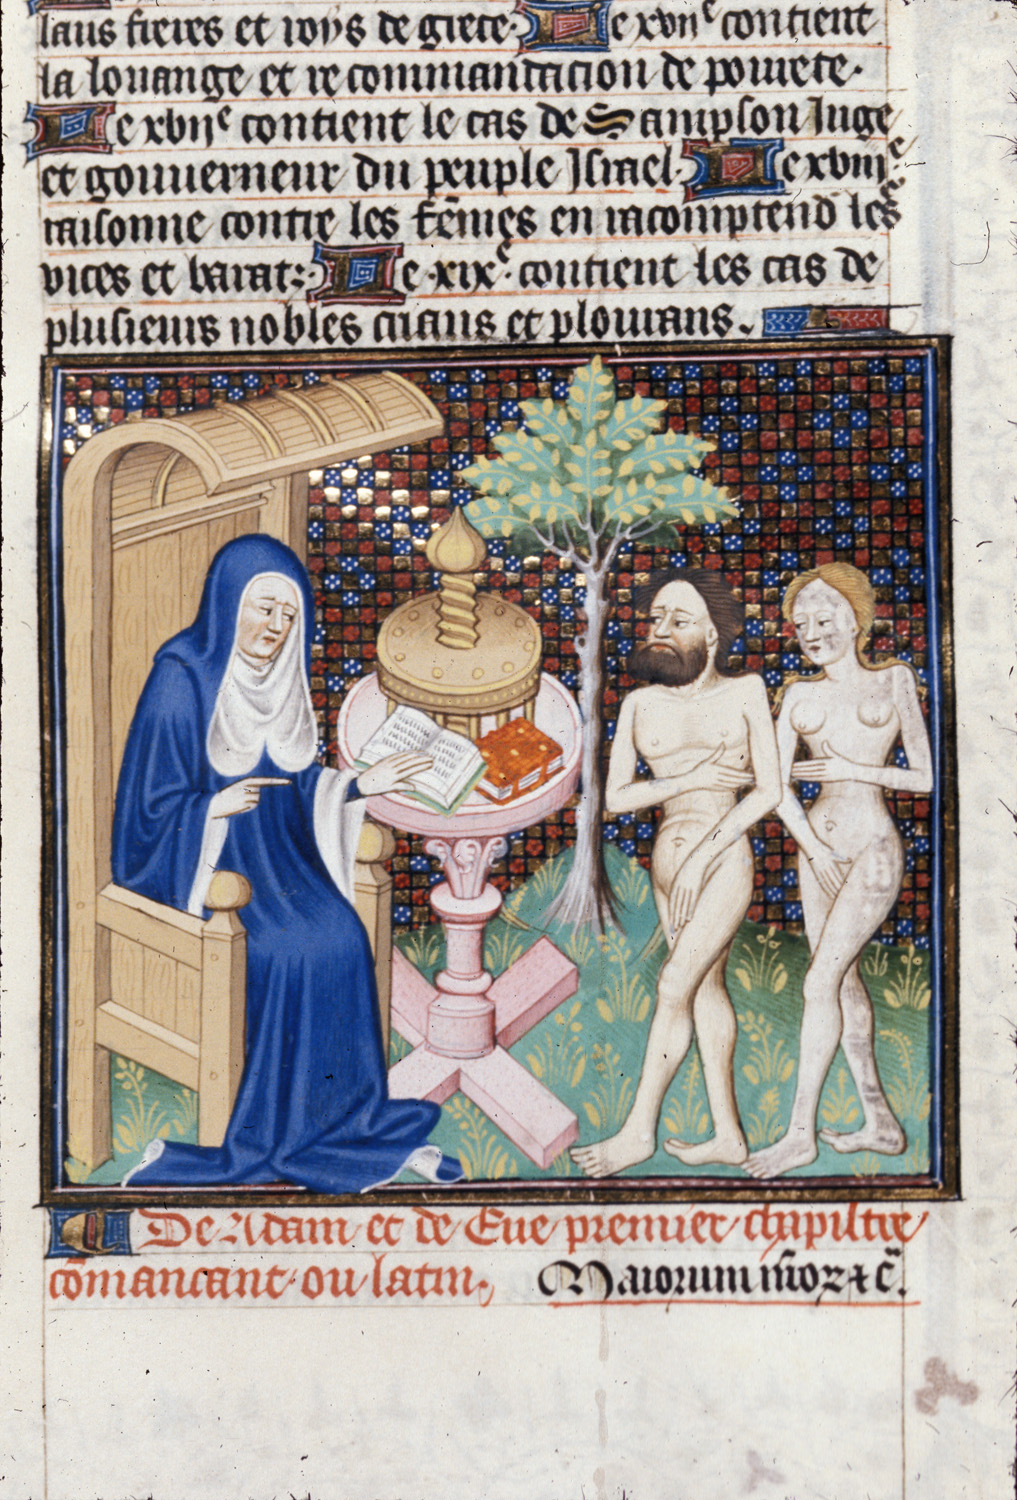 laus freres et roys de grece. Le xvije contient
la louange et recommandacion de pourete.
Le xvije contient le cas de Sampson Juge
et gouuerneur du peuple Israel. Le xviije.
raisonne contre les fēmes en racomptend les
vices et barat: Le .xixe. contient les cas de
plusieurs nobles crians et plourans.
De Adam et de Eue premier chapiltre
cōmancant ou latin. Maiorum